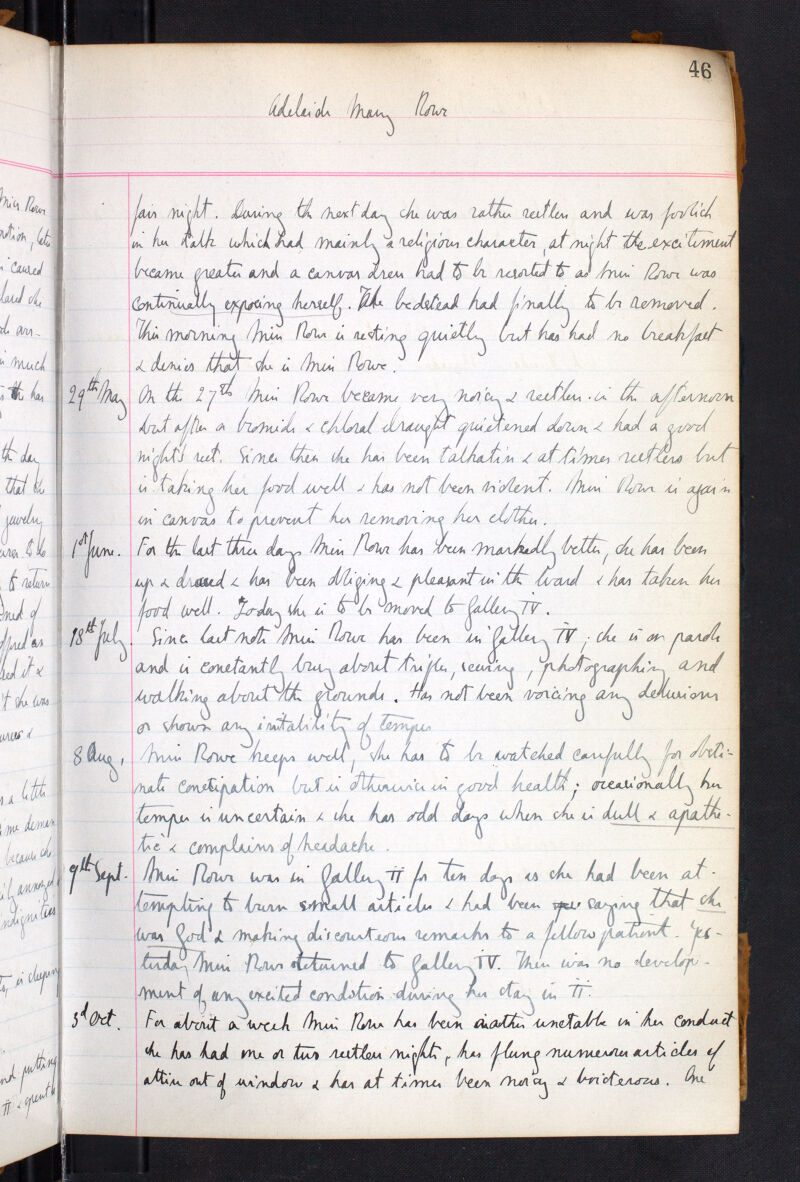 46
Adelaide Mary Rowe
fair night. During the next day she was rather restless and was foolish
in her talk which had mainly a religious character, at night the excitement
became greater and a canvas dress had to be resorted to as Miss Rowe was
continually exposing herself. The bedstead had finally to be removed.
This morning Miss Rowe is resting quietly but has had no breakfast
& denies that she is Miss Rowe.
29th May On the 27th Miss Rowe became very noisy & restless in the afternoon
but after a bromide & chloral draught quietened down & had a good
night's rest. Since then she has been talkative & at times restless but
is taking her food well & has not been violent. Miss Rowe is again
in canvas to prevent her removing her clothes.
1st June. For the last three days Miss Rowe has been markedly better, she has been
up & dressed & has been obliging & pleasant in the ward & has taken her
food well. Today she is to be moved to Gallery IV.
18th July. Since last note Miss Rowe has been in Gallery IV; she is on parole
and is constantly busy about trifles, sewing, photographing and
walking about the grounds. Has not been voicing any delusions
or shown any irritability of temper
8 Aug. Miss Rowe keeps well, she has to be watched carefully for obsti-
nate constipation but is otherwise in good health; occasionally her
temper is uncertain & she has odd days when she is dull & apathe-
tic & complains of headache.
9th Sept. Miss Rowe was in Gallery II for ten days as she had been at-
tempting to burn small articles & had been saying that she
was God & making discourteous remarks to a fellow patient. Yes-
terday Miss Rowe returned to Gallery IV. There was no develop-
ment of any excited condition during her stay in II.
3d Oct. For about a week Miss Rowe has been rather unstable in her conduct
she has had one or two restless nights, has flung numerous articles of
attire out of window & has at times been noisy & boisterous. One